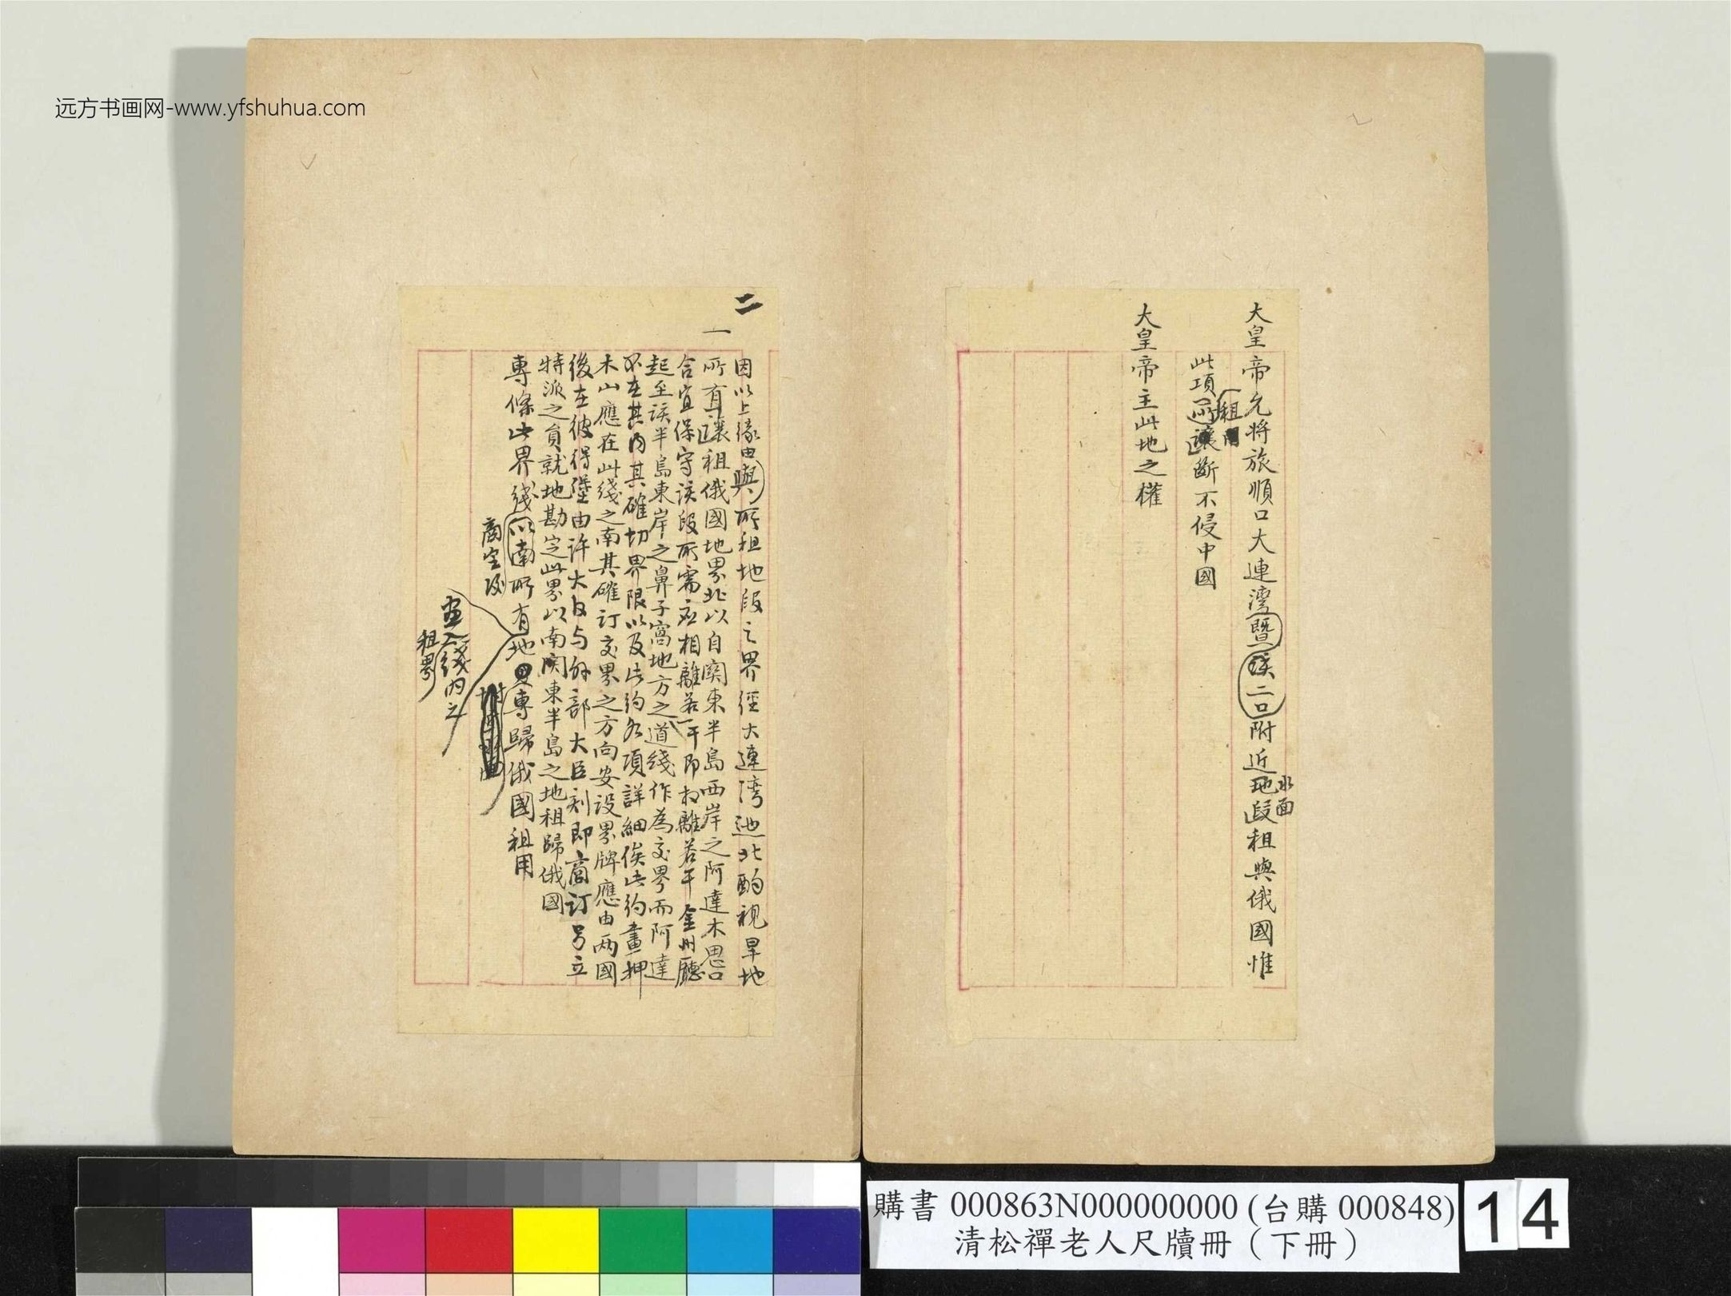 远方书画网-www.yfshuhua.com
大皇帝允將旅順口大連灣暨該二口附近地段租與俄國惟
水面
此項所讓斷不侵中國
租
大皇帝主此地之權
二
一
因以上緣由與所租地段之界徑大連灣迤北酌視旱地
所有讓租俄國地界北以自關東半島西岸之阿達木思口
合宜保守該段所需應相離若干即相離若干金州廳
起至該半島東岸之鼻子窩地方之道綫作為交界而阿達
不在其內其確切界限以及此約各項詳細俟此約畫押
木山應在此綫之南其確訂交界之方向安設界牌應由兩國
後在彼得堡由許大臣与外部大臣刻即商訂另立
特派之員就地勘定此界以南關東半島之地租歸俄國
專條此界綫以南所有地專歸俄國租用
商定後
畫入綫內之
租界
購書 000863N000000000 (台購 000848)
清松禪老人尺牘冊（下冊）
14